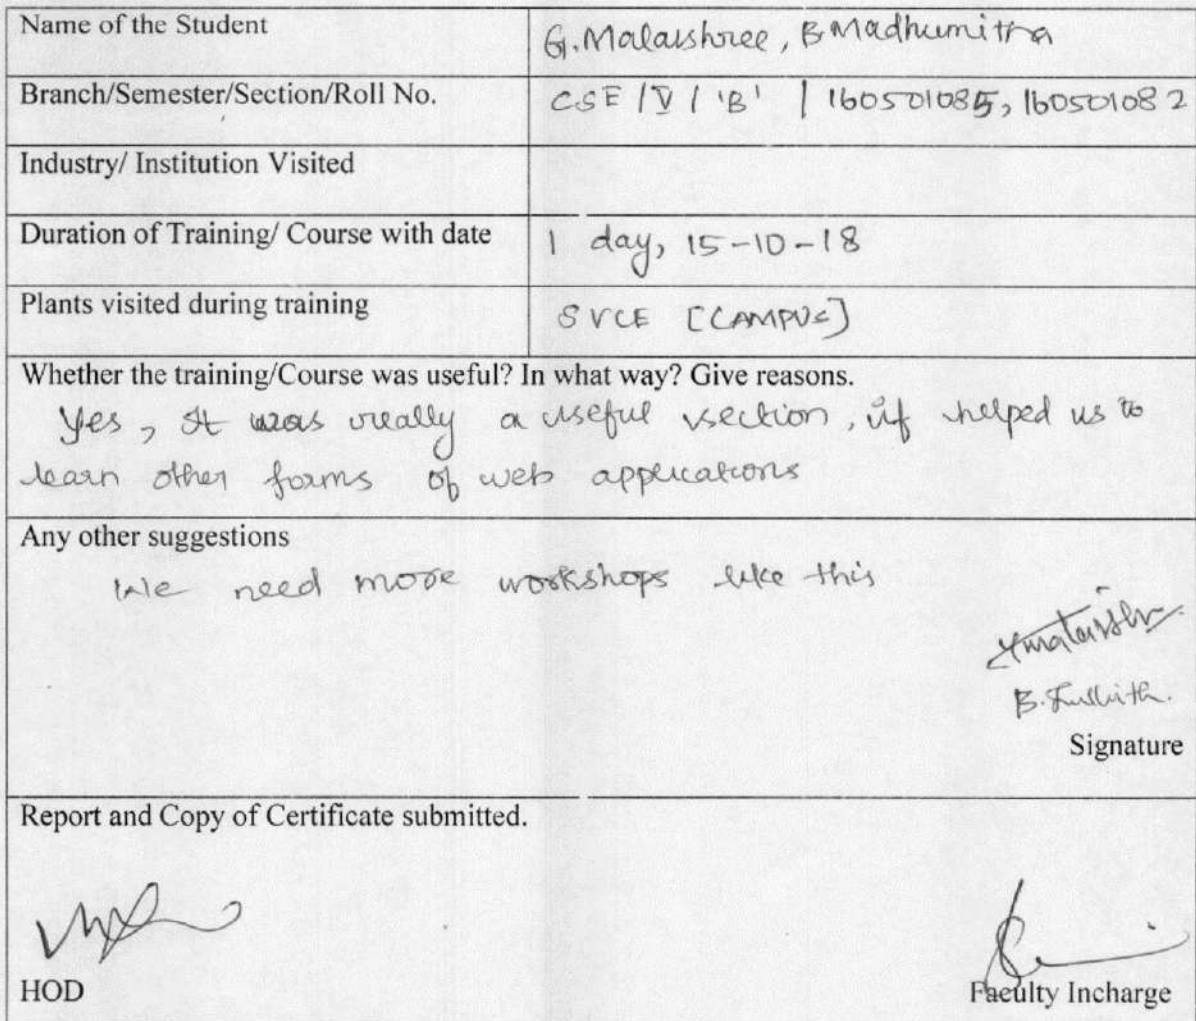 Name of the Student G. Malarshree, B Madhumitra
Branch/Semester/Section/Roll No. CSE / V / 'B' | 160501085, 160501082
Industry/ Institution Visited
Duration of Training/ Course with date 1 day, 15-10-18
Plants visited during training SVCE [CAMPUS]
Whether the training/Course was useful? In what way? Give reasons.
Yes, It was really a useful section, it helped us to
learn other forms of web applications
Any other suggestions
We need more workshops like this
Signature
Report and Copy of Certificate submitted.
HOD Faculty Incharge